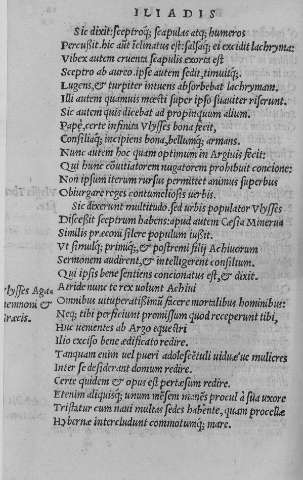 ILIADIS
Sic dixit: sceptroq; scapulas atq; humeros
Percussit. hic aũt ĩclinatus est: salsaq; ei excidit lachryma:
Vibex autem cruenta scapulis exorta est
Sceptro ab aureo. ipse autem sedit, timuitq;.
Lugens, & turpiter intuens absorbebat lachrymam.
Illi autem quamuis mœsti super ipso suauiter riserunt.
Sic autem quis dicebat ad propinquum alium.
Papę, certe infinita Vlysses bona fecit,
Consiliaq; incipiens bona, bellumq; armans.
Nunc autem hoc quam optimum in Argiuis fecit:
Qui hunc cõuitiatorem nugatorem prohibuit concione:
Non ipsum iterum rursus permittet animus superbus
Obiurgare reges contumeliosis uerbis.
Sic dixerunt multitudo. sed urbis populator Vlysses
Discessit sceptrum habens: apud autem Cæsia Minerua
Similis præconi silere populum iussit.
Vt simulq; primiq;, & postremi filij Achiuorum
Sermonem audirent, & intelligerent consilium.
Qui ipsis bene sentiens concionatus est, & dixit.
Vlysses Aga-
memnoni &
Græcis.
Atride nunc te rex uolunt Achiui
Omnibus uituperatissimũ facere mortalibus hominibus:
Neq; tibi perficiunt promissum quod receperunt tibi,
Huc uenientes ab Argo equestri
Ilio excelso bene ædificato redire.
Tanquam enim uel pueri adolescẽtuli uiduæ'ue mulieres
Inter se desiderant domum redire.
Certe quidem & opus est pertæsum redire.
Etenim aliquisq; unum mẽsem manẽs procul à sua uxore
Tristatur cum naui multas sedes habente, quam procellæ
Hybernæ intercludunt commotumq; mare.